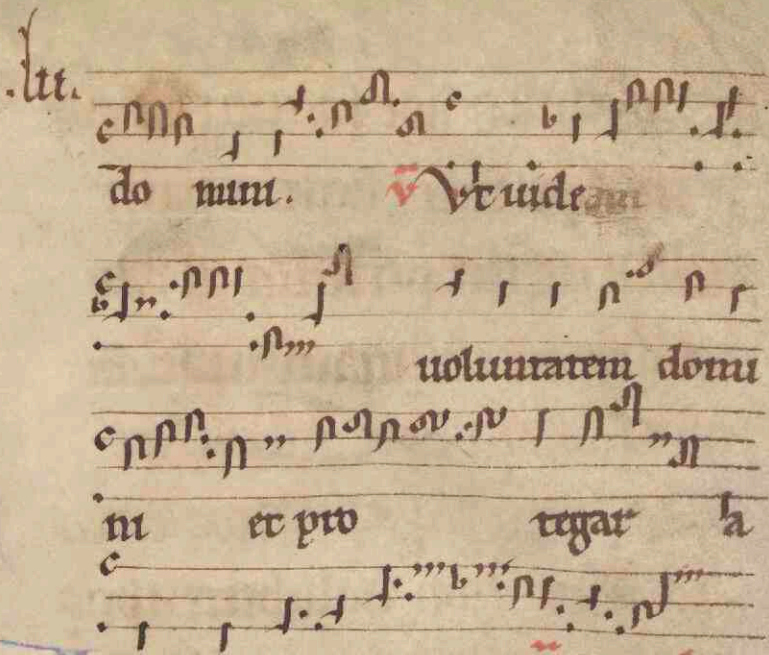 .ltt.
do mini. v Vt uideam
uoluntatem domi
ni et pro tegar a